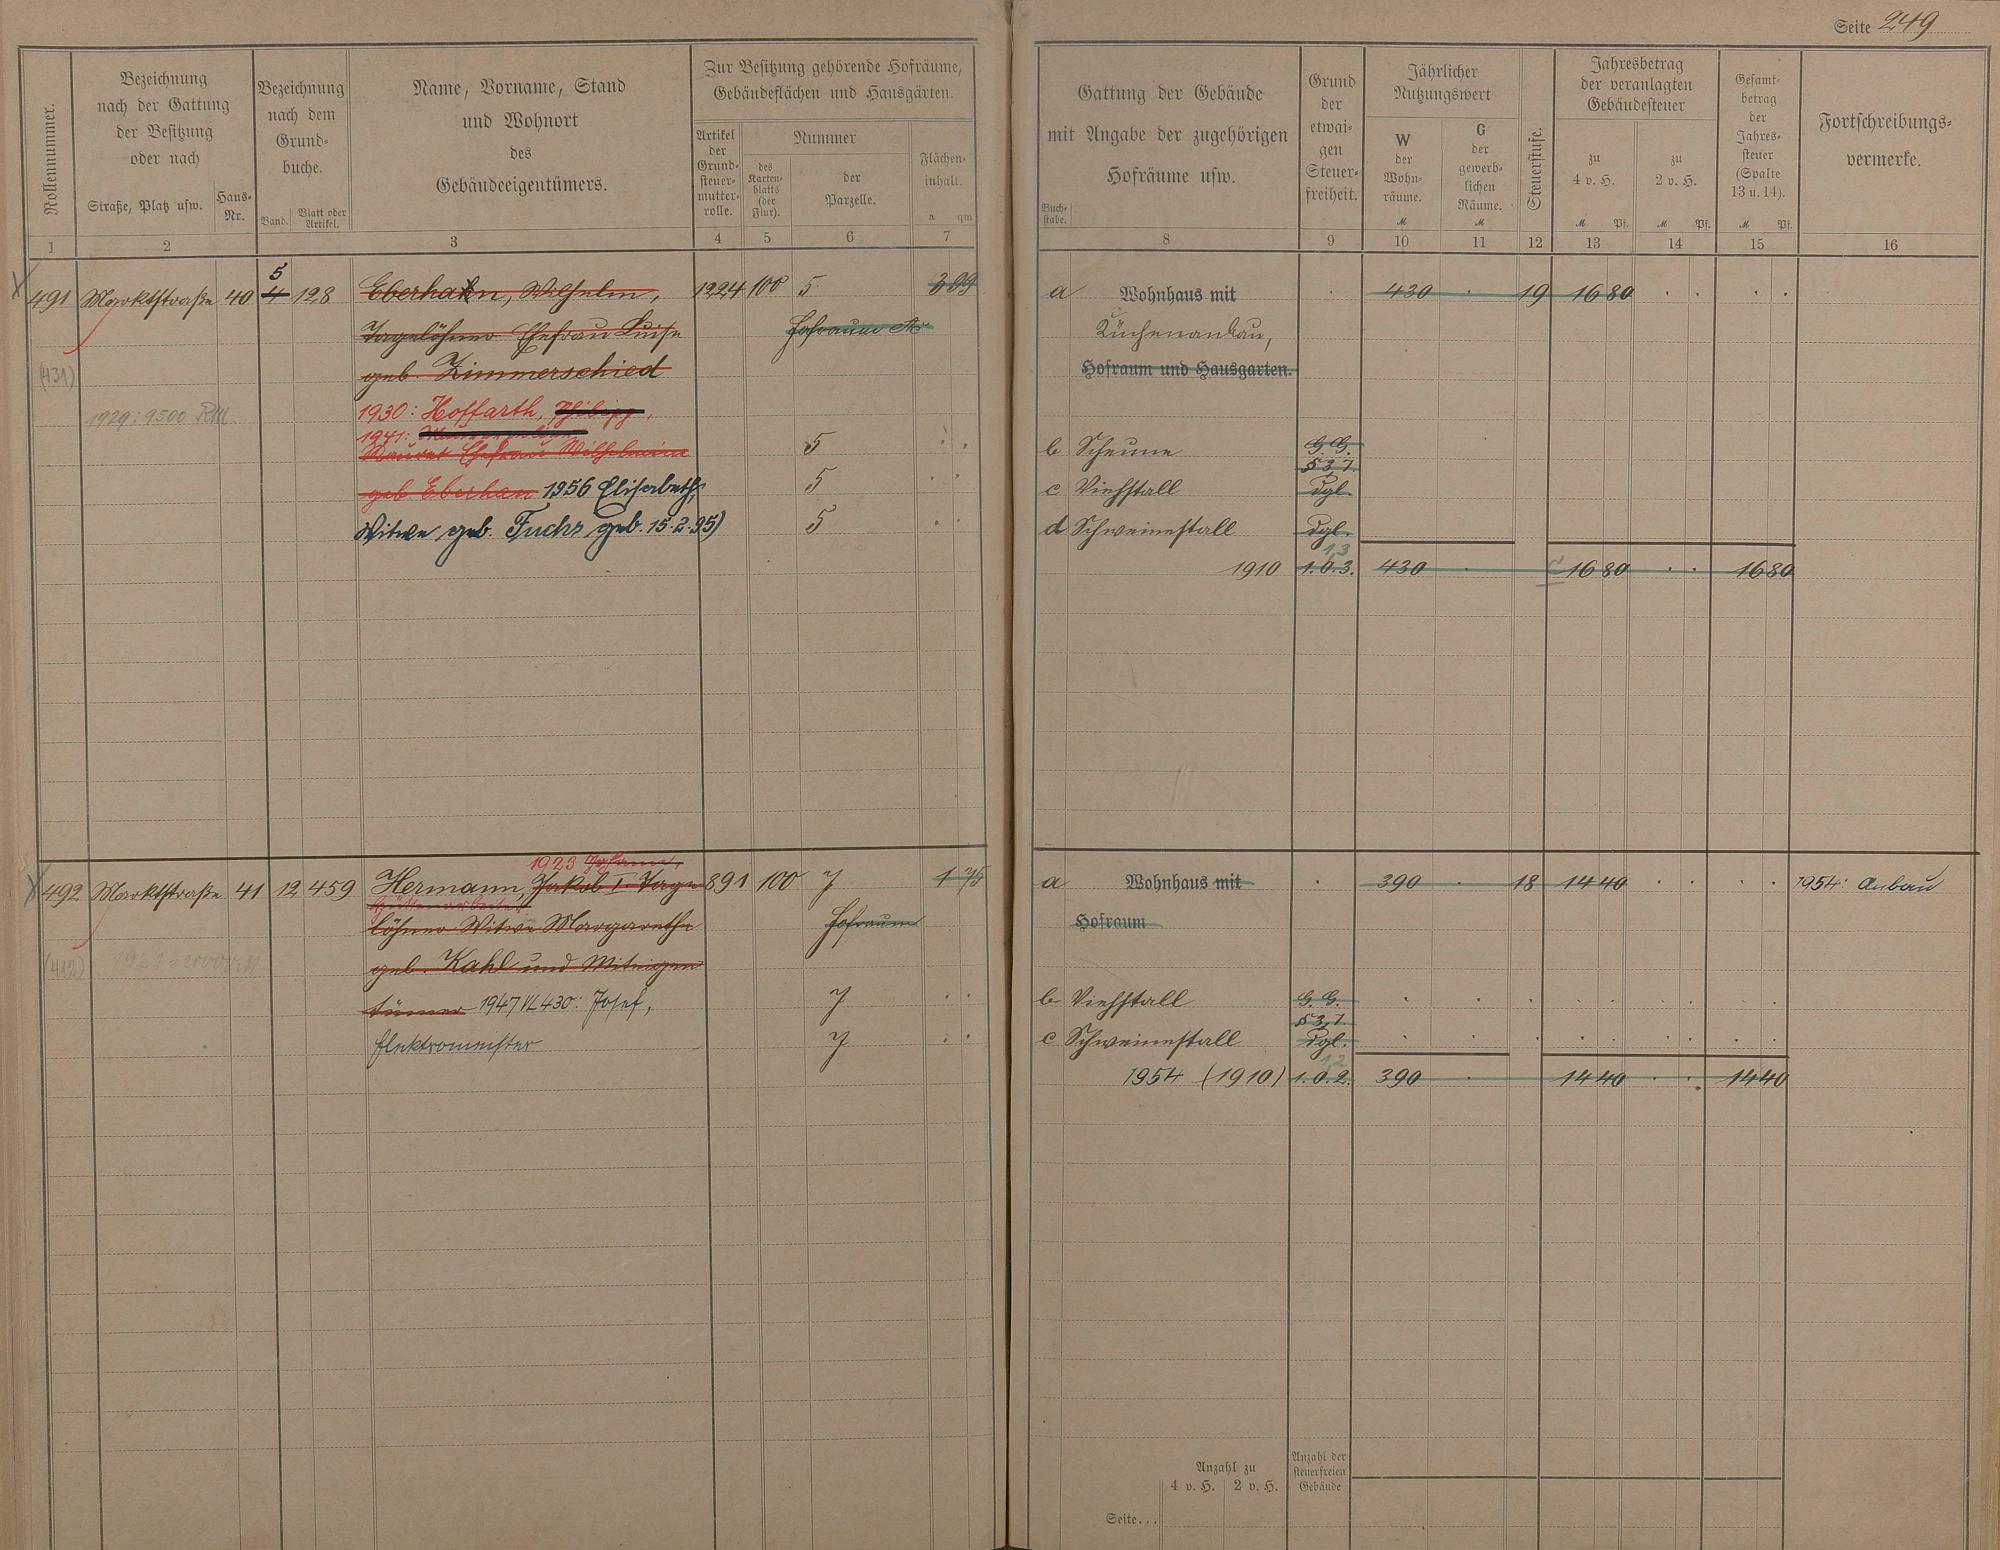 Seite 249
Rollennummer.
Bezeichnung
nach der Gattung
der Besitzung
oder nach
Straße, Platz usw.
Haus-
Nr.
Bezeichnung
nach dem
Grund-
buche.
Band.
Blatt oder
Artikel.
Name, Vorname, Stand
und Wohnort
des
Gebäudeeigentümers.
Zur Besitzung gehörende Hofräume,
Gebäudeflächen und Hausgärten.
Artikel
der
Grund-
steuer-
mutter-
rolle.
Nummer
des
Karten-
blatts
(der
Flur).
der
Parzelle.
Flächen-
inhalt.
a qm
Gattung der Gebäude
mit Angabe der zugehörigen
Hofräume usw.
Buch-
stabe.
Grund
der
etwai-
gen
Steuer-
freiheit.
Jährlicher
Nutzungswert
W
der
Wohn-
räume.
M
G
der
gewerb-
lichen
Räume.
M
Steuerstufe.
Jahresbetrag
der veranlagten
Gebäudesteuer
zu
4 v. H.
M Pf.
zu
2 v. H.
M Pf.
Gesamt-
betrag
der
Jahres-
steuer
(Spalte
13 u. 14).
M Pf.
Fortschreibungs-
vermerke.
1 2 3 4 5 6 7 8 9 10 11 12 13 14 15 16
5
491 Marktstraße 40 4 128 Eberhahn, Wilhelm, 1224 100 5 3 09 a Wohnhaus mit 430 19 16 80
Tagelöhner Ehefrau Luise Hofraum Küchenanbau,
(431) geb. Zimmerschied Hofraum und Hausgarten.
1929: 9500 RM 1930: Hoffarth, Philipp,
1941:
Ehefrau Wilhelmine 5 b Scheune G. G.
§ 3,7.
geb. Eberhan 1956 Elisabeth, 5 c Viehstall Dgl.
Witwe geb. Fuchs geb. 15.2.95) 5 d Schweinestall Dgl.
1,3
1910 1.0.3. 430 16 80 16 80
1923
492 Marktstraße 41 12 459 Hermann, Jakob I. Tage- 891 100 7 1 75 a Wohnhaus mit 390 18 14 40 1954: Anbau
löhner Witwe Margarethe Hofraum Hofraum
(412) geb. Kahl und Miteigen
tümer 1947 430: Josef, 7 b Viehstall G. G.
§ 3,7.
Elektromeister 7 c Schweinestall Dgl.
1,2
1954 (1910) 1.0.2. 390 14 40 14 40
Anzahl zu
4 v. H. 2 v. H.
Anzahl der
steuerfreien
Gebäude
Seite...